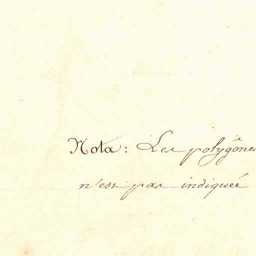 Nota: Les polygône
n'est pas indiquée